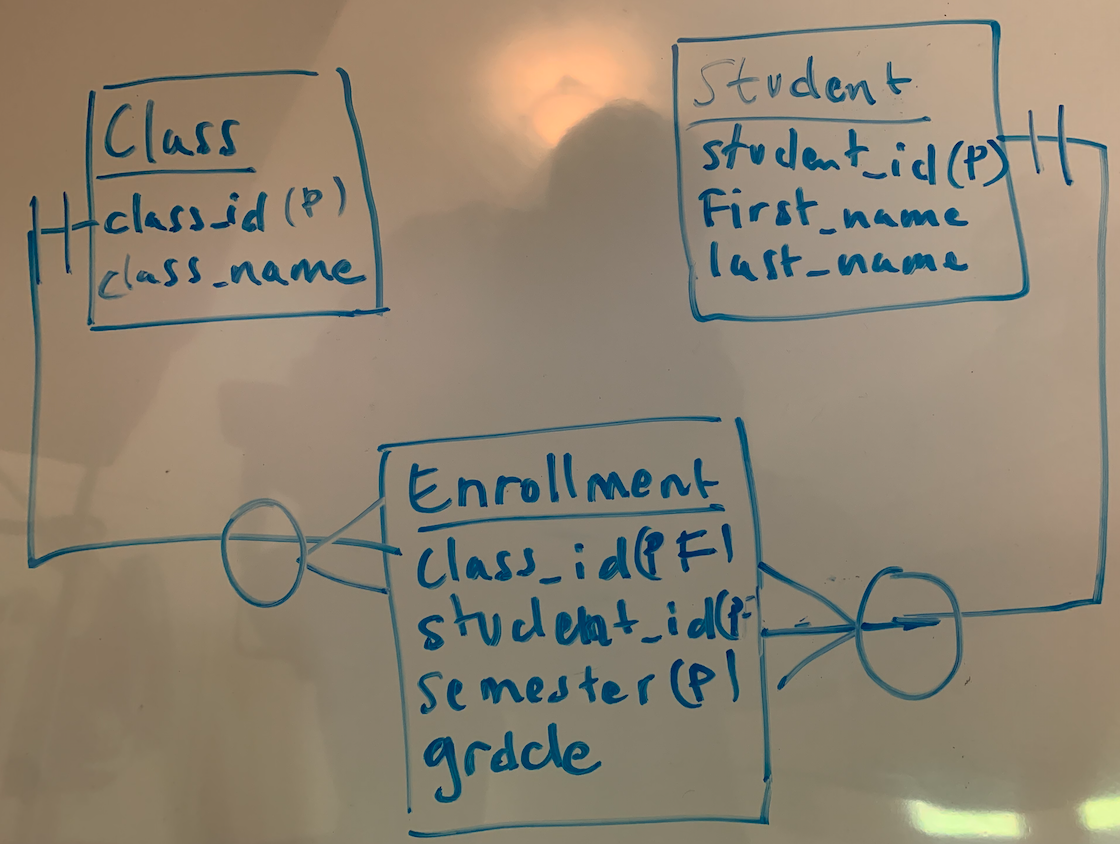 Class
class_id (P)
class_name
Student
student_id (P)
First_name
last_name
Enrollment
Class_id (PF)
student_id (P
semester (P)
grade